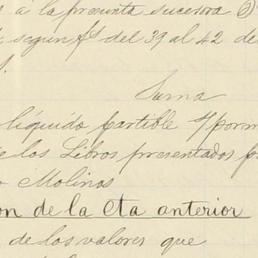 s á la presunta sucesora
segun fs del 39 al 42 de
Suma
liquido partible
de los Libros presentados
Molinos
on de la Cta anterior
de los valores que